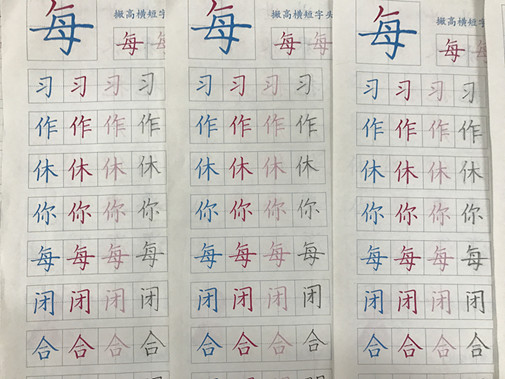 每 撇高横短字 每 每 每 撇高横短字头 每 每 每 每 每
习 习 习 习 习 习 习 习 习 习 习 习
作 作 作 作 作 作 作 作 作 作 作 作
休 休 休 休 休 休 休 休 休 休 休 休
你 你 你 你 你 你 你 你 你 你 你 你
每 每 每 每 每 每 每 每 每 每 每 每
闭 闭 闭 闭 闭 闭 闭 闭 闭 闭 闭 闭
合 合 合 合 合 合 合 合 合 合 合 合